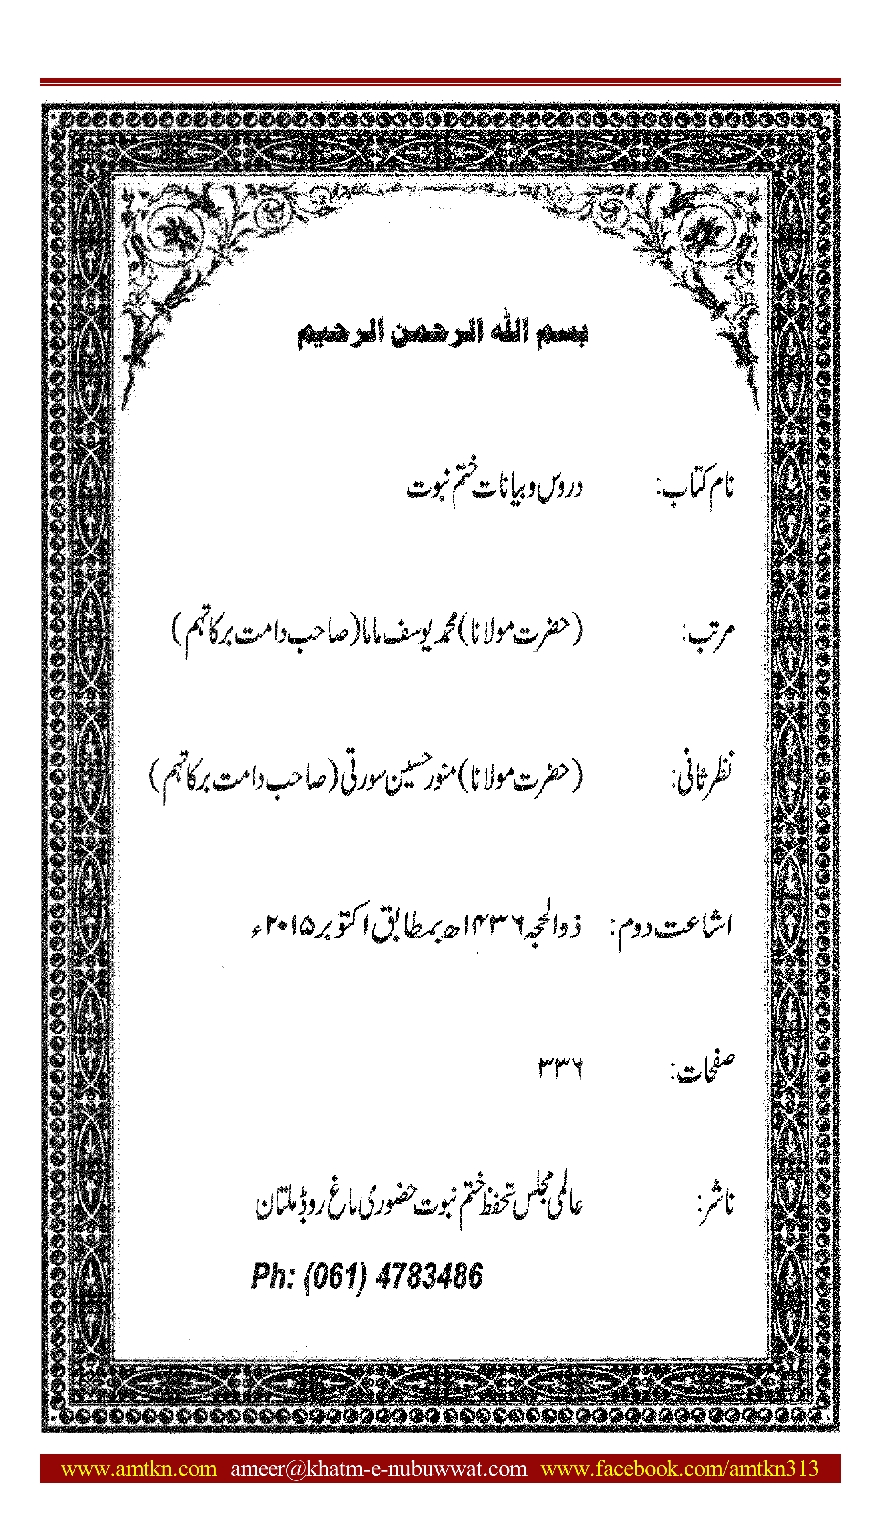 بسم الله الرحمن الرحيم
نام کتاب: دروس و بیانات ختم نبوت
مرتب: (حضرت مولانا) محمد یوسف ماما (صاحب دامت برکاتہم)
نظر ثانی: (حضرت مولانا) منور حسین سورتی (صاحب دامت برکاتہم)
اشاعت دوم: ذوالحجہ ۱۴۳۶ھ بمطابق اکتوبر ۲۰۱۵ء
صفحات: ۳۳۶
ناشر: عالمی مجلس تحفظ ختم نبوت حضوری باغ روڈ ملتان
Ph: (061) 4783486
www.amtkn.com ameer@khatm-e-nubuwwat.com www.facebook.com/amtkn313